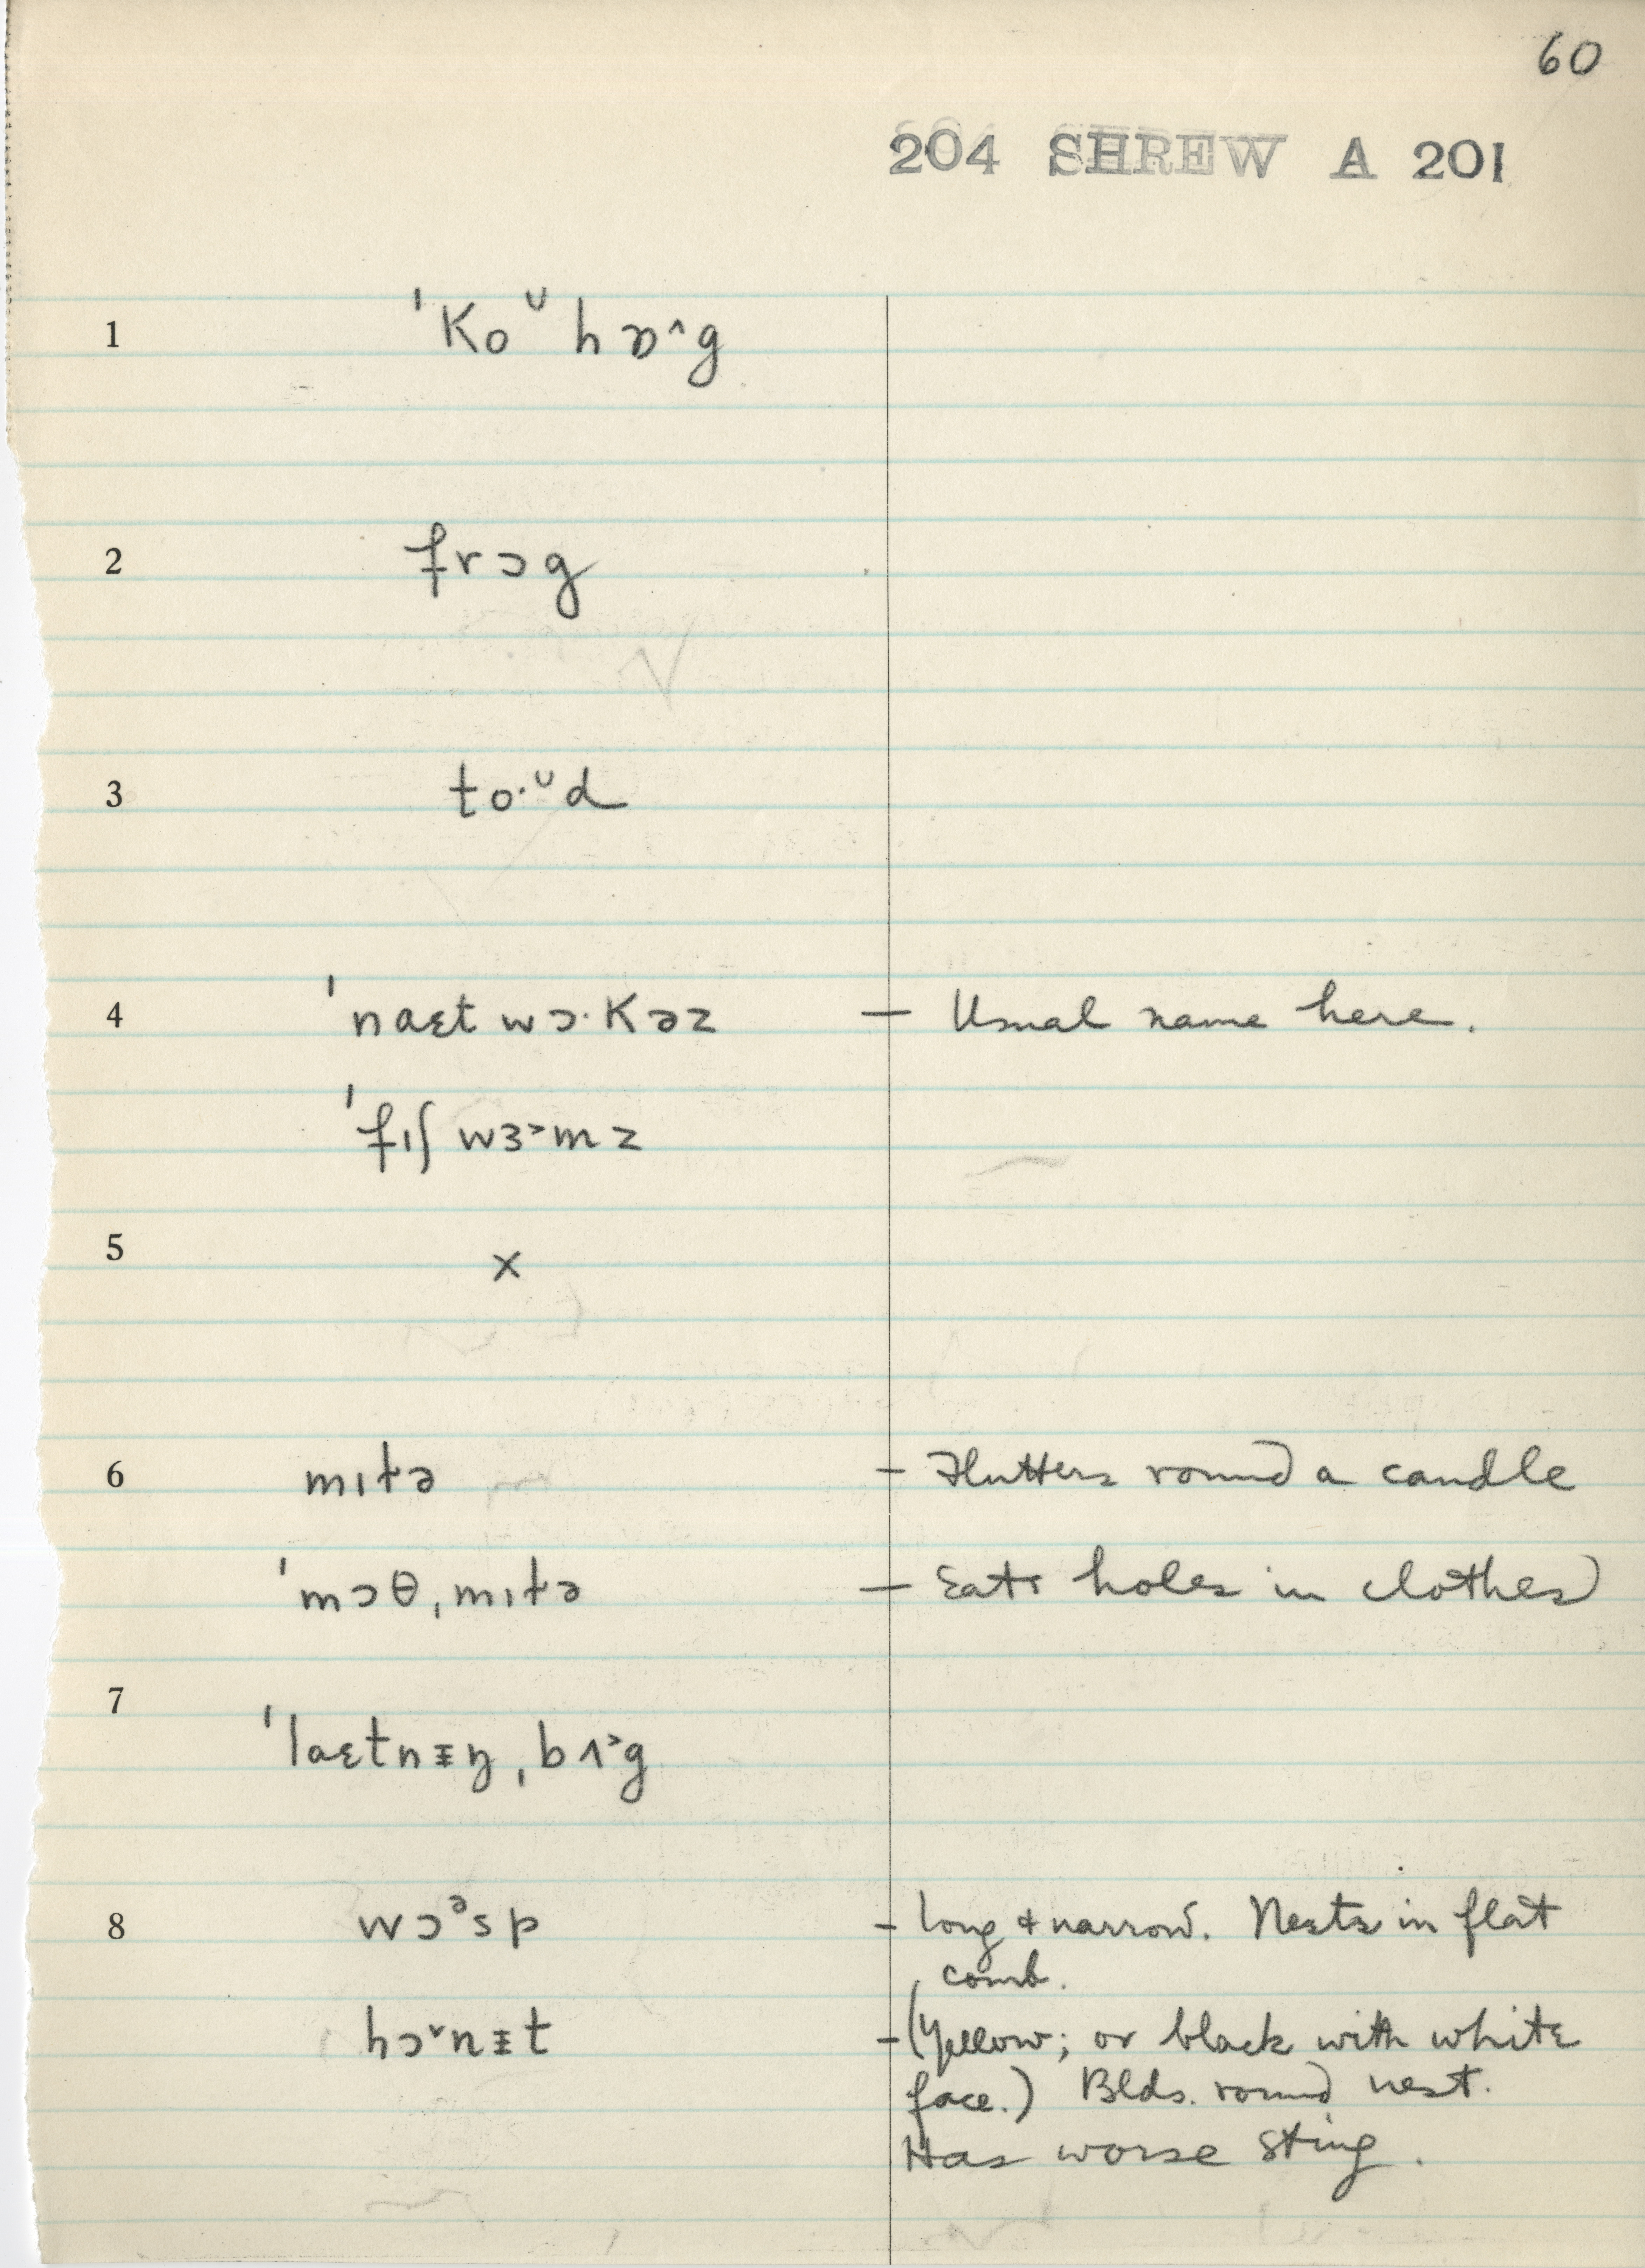 60
204 SHREW A 201
1 ˈkoᴜ hɒ˄g
2 frɔg
3 to·ᴜd
4 ˈnaɛt wɔ·kəz – Usual name here.
ˈfɪʃ wɜ˃mz
5 x
6 mɪt̬ə – Flutters round a candle
ˈmɔθˌmɪt̬ə – Eats holes in clothes
7 ˈlaɛtnᵻŋˌbʌ˃g
8 wɔᵊsp – long & narrow. Nests in flat
comb.
hɔ˅nᵻt – (Yellow; or black with white
face.) Blds. round nest.
Has worse sting.